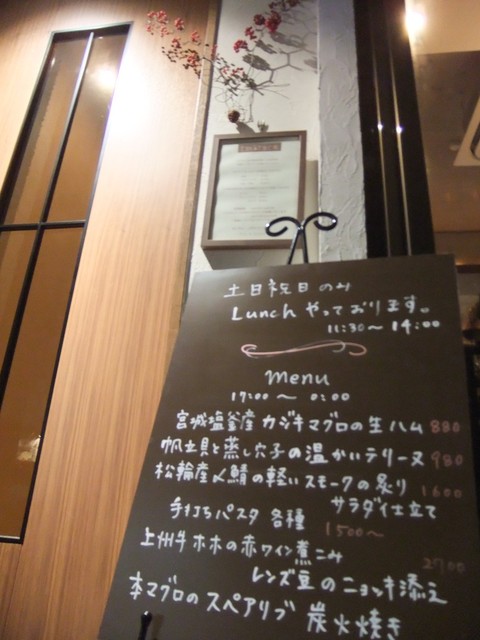 土日祝日のみ
Lunchやっております。
11:30〜14:00
menu
17:00〜0:00
宮城塩釜産カジキマグロの生ハム 880
帆立貝と蒸し穴子の温かいテリーヌ 980
松輪産〆鯖の軽いスモークの炙り
サラダ仕立て 1600
手打ちパスタ 各種 1500〜
上州牛ホホの赤ワイン煮こみ
レンズ豆のニョッキ添え 2700
本マグロのスペアリブ 炭火焼き